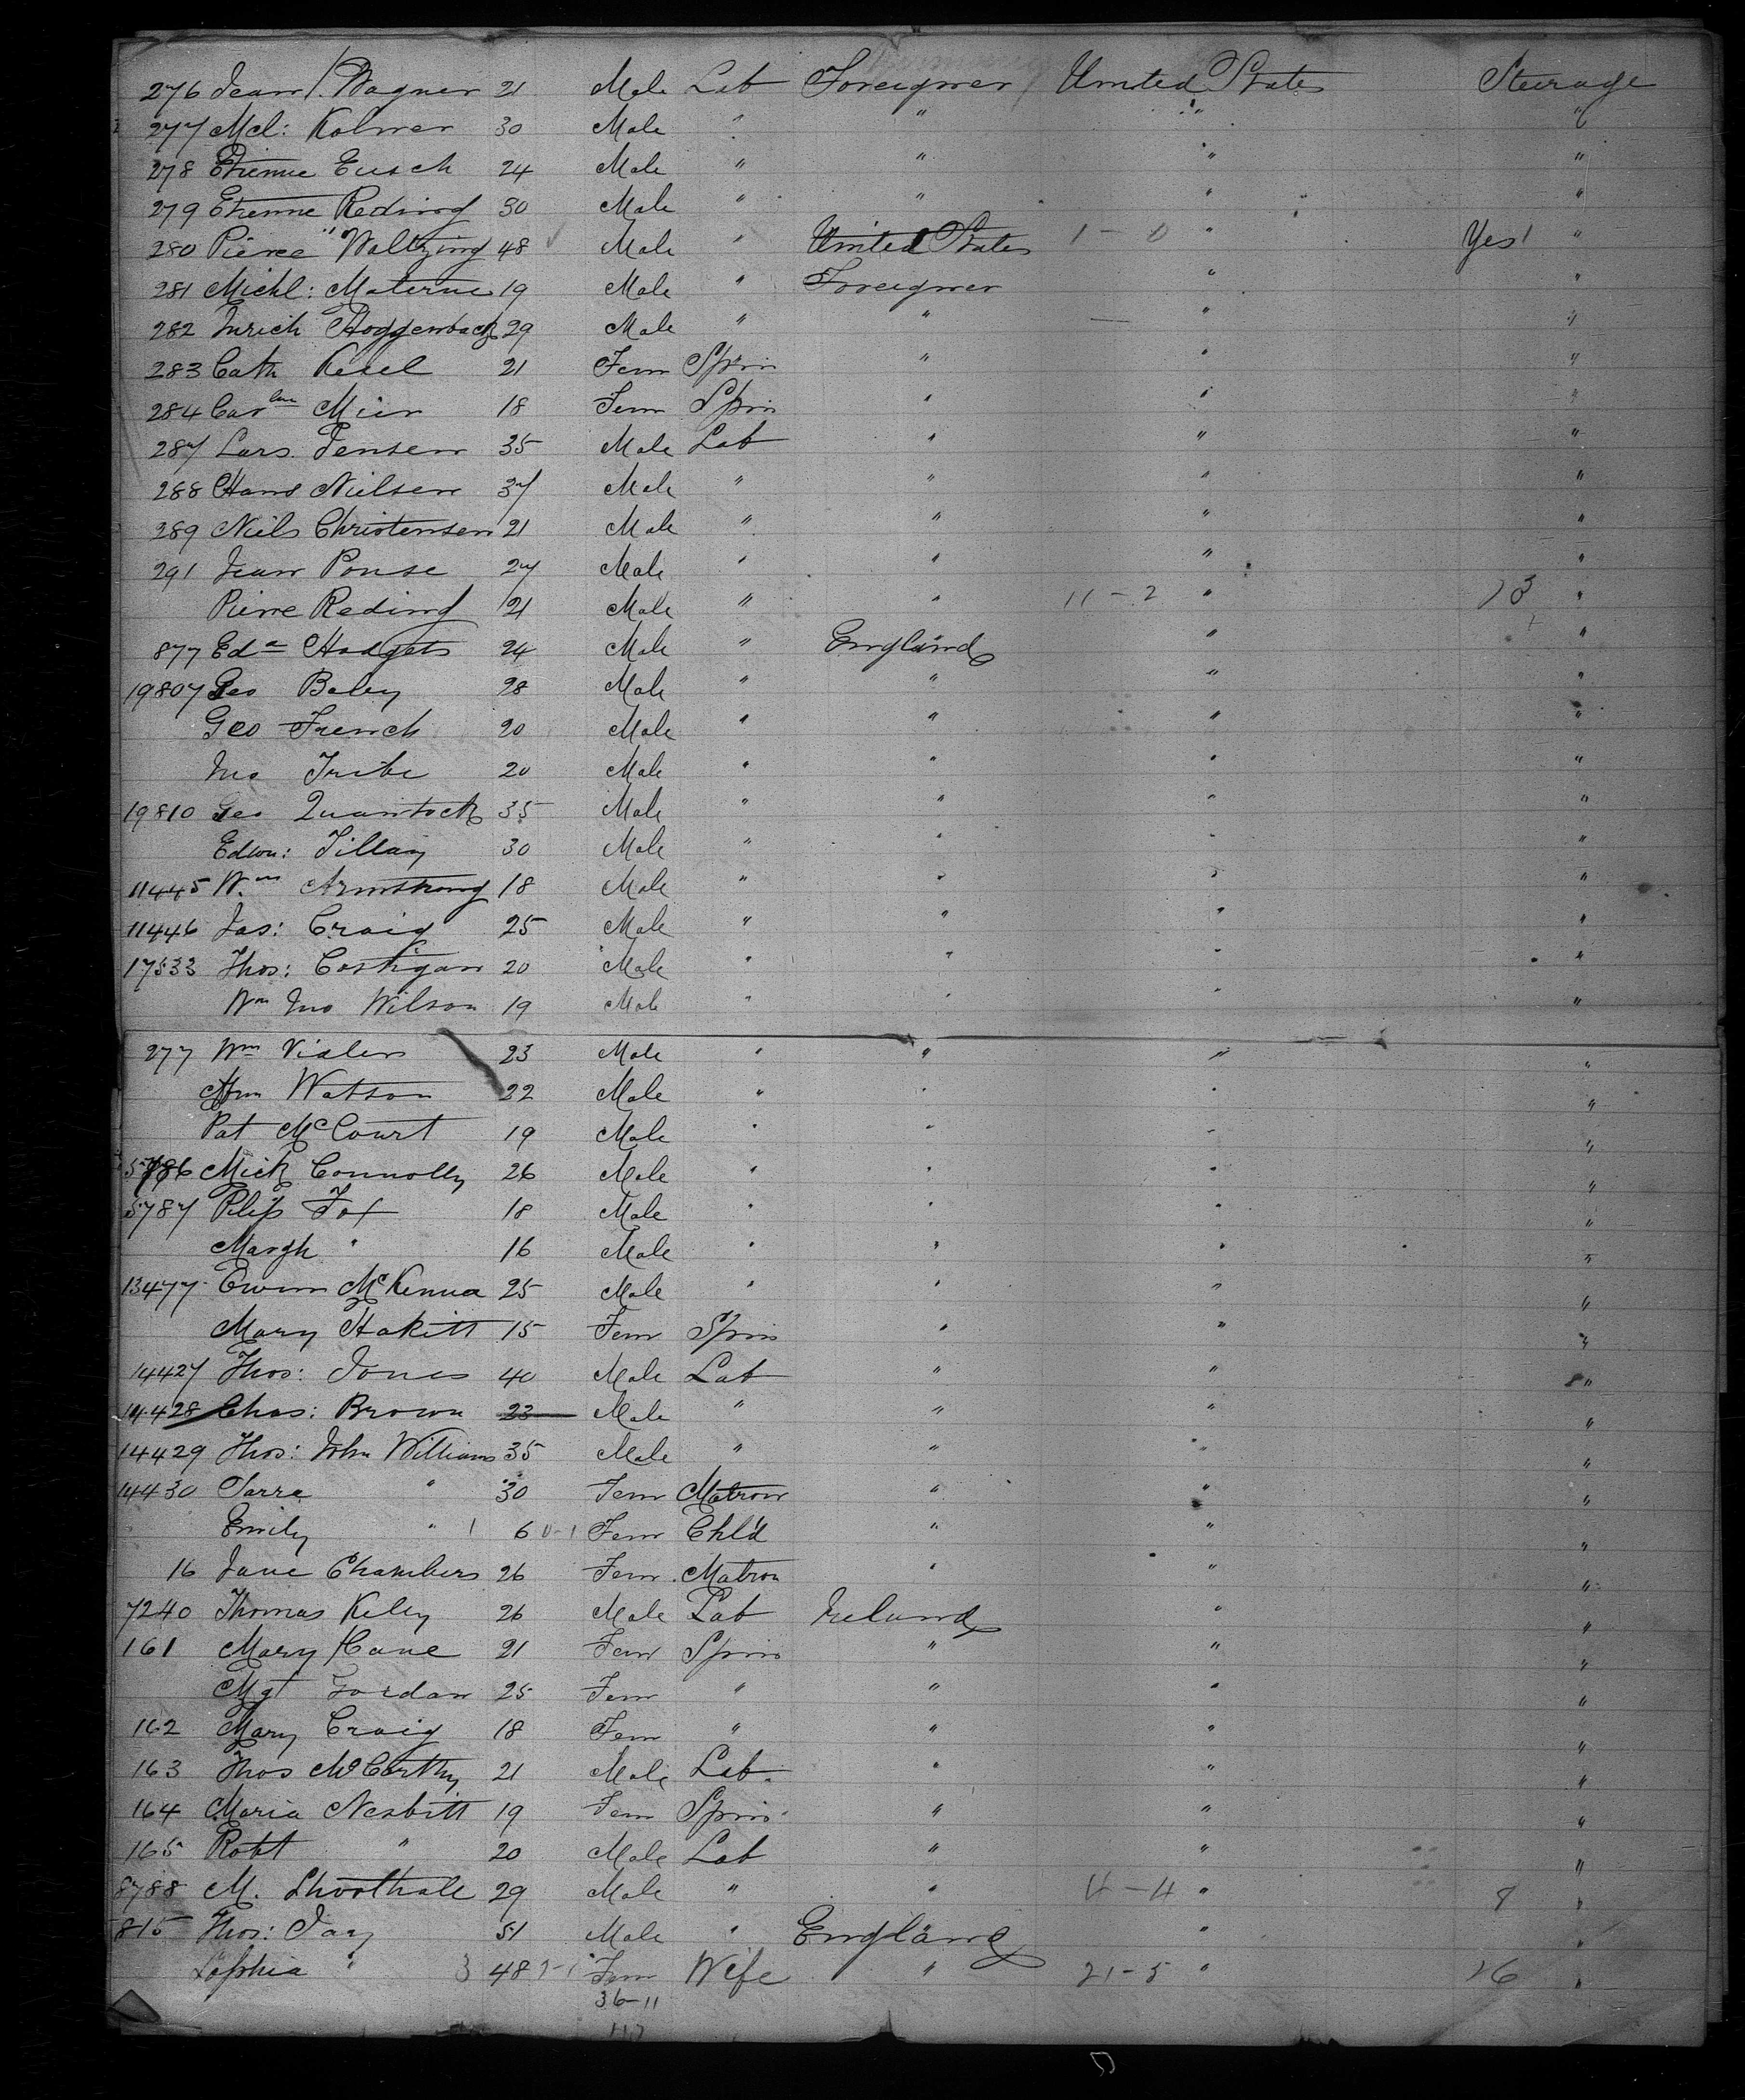 276 Jean P. Wagner 21 Male Lab Foreigner United States Steerage
277 Mcl: Kolmer 30 Male " " " "
278 Etienne Eusch 24 Male " " " "
279 Etienne Reding 30 Male " " " "
280 Pierre Waltzing 48 Male " United States 1-0 " Yes 1 "
281 Michl: Materne 19 Male " Foreigner " "
282 Inrich Hoggenback 29 Male " " " "
283 Cath Kesel 21 Fem Spin " " "
284 Carline Mier 18 Fem Spin " " "
287 Lars Jensen 35 Male Lab " " "
288 Hans Nielsen 37 Male " " " "
289 Niels Christensen 21 Male " " " "
291 Jean Ponse 27 Male " " " "
Pierre Reding 21 Male " " 11-2 " 13 "
877 Edd Hodgets 24 Male " England " "
19807 Geo Baley 28 Male " " " "
Geo French 20 Male " " " "
Jno Tribe 20 Male " " " "
19810 Geo Quantock 35 Male " " " "
Edwn: Tillay 30 Male " " " "
11445 Wm Armstrong 18 Male " " " "
11446 Jas: Craig 25 Male " " " "
17533 Thos: Costigan 20 Male " " " "
Wm Jno Wilson 19 Male " " " "
277 Wm Vialer 23 Male " " " "
Watson 22 Male " " " "
Pat McCourt 19 Male " " " "
5786 Mick Connolly 26 Male " " " "
5787 Pilip Fox 18 Male " " " "
Margh " 16 Male " " " "
13477 Ewin McKenna 25 Male " " " "
Mary Hakitt 15 Fem Spin " " "
14427 Thos: Jones 40 Male Lab " " "
14428 Chas: Brown 23 Male " " " "
14429 Thos: John Williams 35 Male " " " "
14430 Sarra " 30 Fem Matron " " "
Emily " 1 6 0-1 Fem Chld " " "
16 Jane Chambers 26 Fem Matron " " "
7240 Thomas Kiley 26 Male Lab Ireland " "
161 Mary Cane 21 Fem Spin " " "
Mgt Jordan 25 Fem " " " "
162 Mary Craig 18 Fem " " " "
163 Thos McCarthy 21 Male Lab " " "
164 Maria Nesbitt 19 Fem Spin " " "
165 Robt " 20 Male Lab " " "
8788 M. Shoothale 29 Male " " 4-4 " 8 "
815 Thos: Jay 51 Male " England " "
Sophia " 3 48 Fem Wife " 21-5 " 26 "
36-11
117